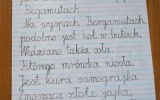 Bergamutach
Na wyspach Bergamutach
podobno jest kot w butach,
Widziano także osła,
Którego mrówka niosła,
Jest kura samograjka
znosząca złote jajka,